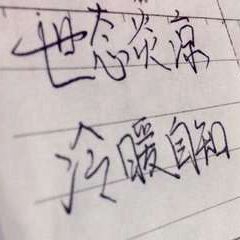 世态炎凉
冷暖自知